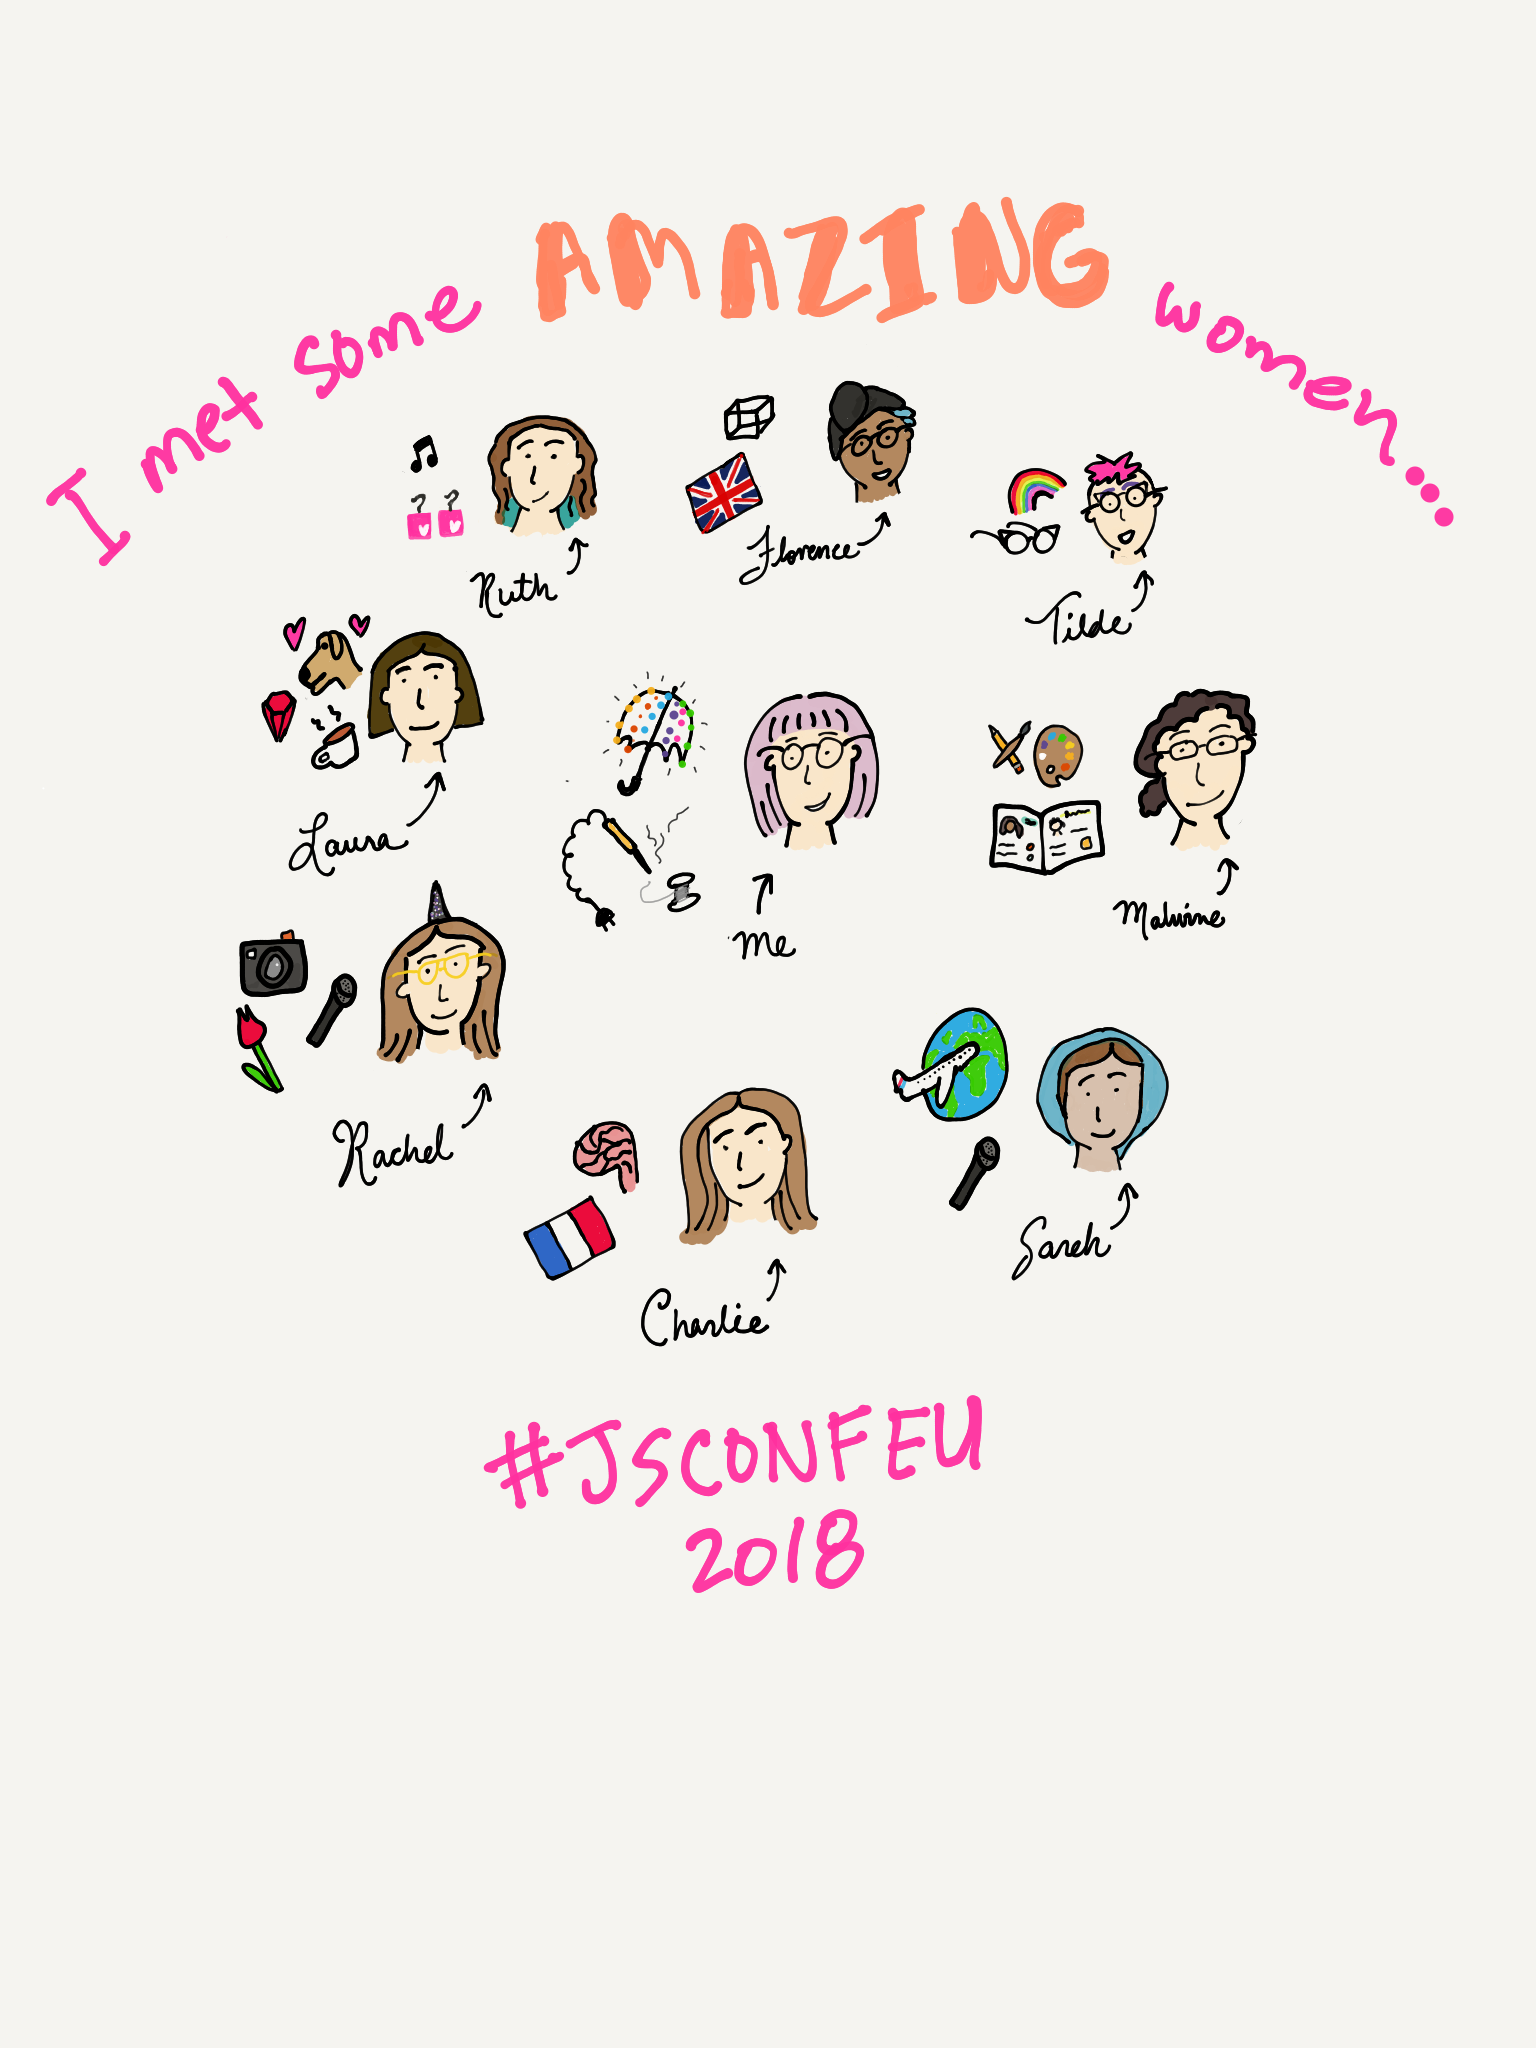 I met some AMAZING women...
Ruth
Florence
Tilde
Laura
Me
Malwine
Rachel
Charlie
Sareh
#JSCONFEU
2018